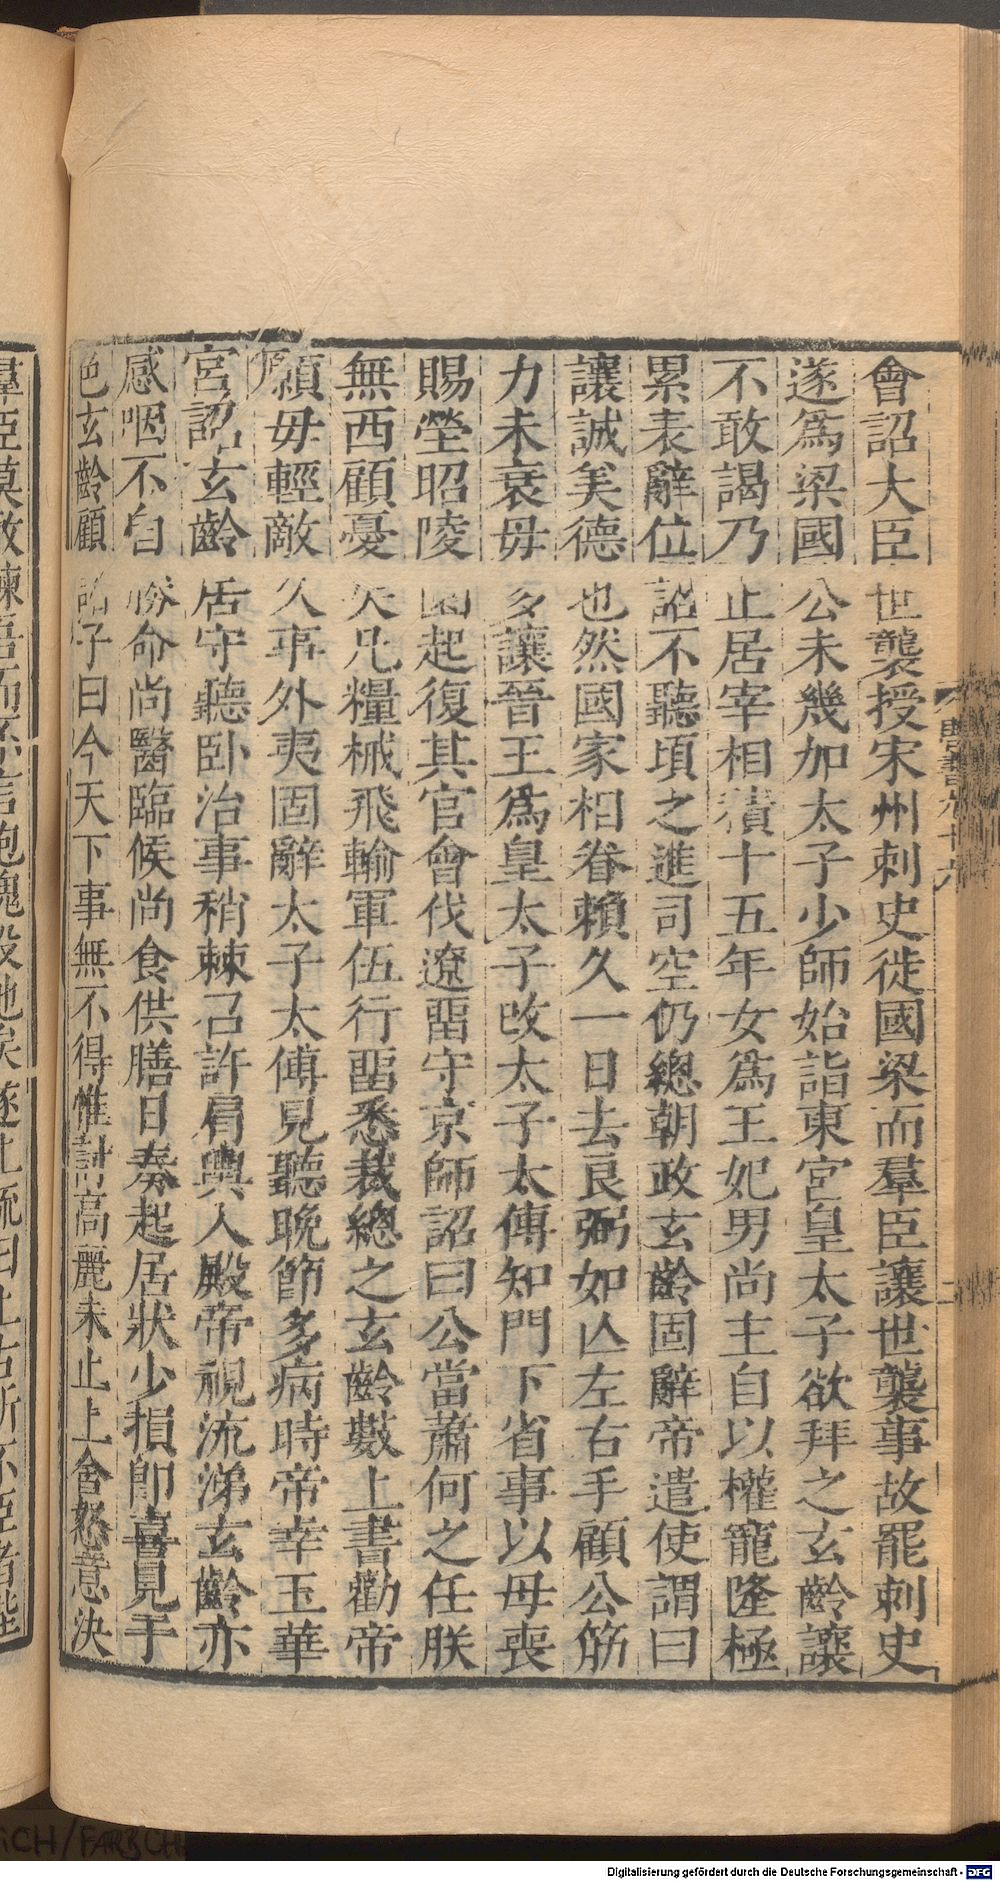 會詔大臣世襲授宋州刺史徙國梁而羣臣讓世襲事故罷刺史
遂爲梁國公未幾加太子少師始詣東宮皇太子欲拜之玄齡讓
不敢謁乃止居宰相積十五年女爲王妃男尚主自以權寵隆極
累表辭位詔不聽頃之進司空仍總朝政玄齡固辭帝遣使謂曰
讓誠美德也然國家相眷賴久一日去良弼如亾左右手顧公筋
力未衰毋多讓晉王爲皇太子改太子太傅知門下省事以母喪
賜塋昭陵園起復其官會伐遼畱守京師詔曰公當蕭何之任朕
無西顧憂矣凡糧械飛輸軍伍行畱悉裁總之玄齡數上書勸帝
願毋輕敵久事外夷固辭太子太傅見聽晚節多病時帝幸玉華
宮詔玄齡居守聽臥治事稍棘召許肩輿入殿帝視流涕玄齡亦
感咽不自勝命尚醫臨候尚食供膳日奏起居狀少損卽喜見于
色玄齡顧諸子曰今天下事無不得惟討高麗未止上含怒意決
羣臣莫敢諫吾而不言抱愧沒地矣遂上疏曰上古所不臣者陛
唐書九十六
二
Digitalisierung gefördert durch die Deutsche Forschungsgemeinschaft - DFG